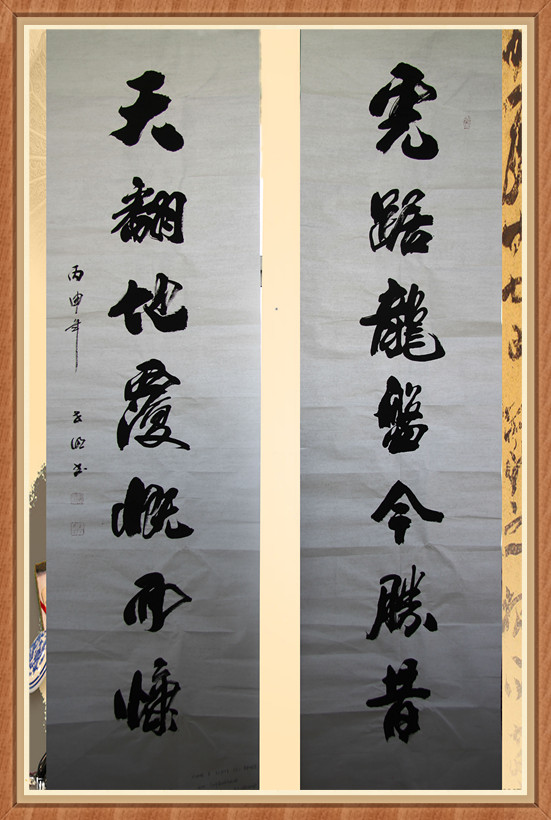 虎踞龍盤今勝昔
天翻地覆慨而慷
丙申年